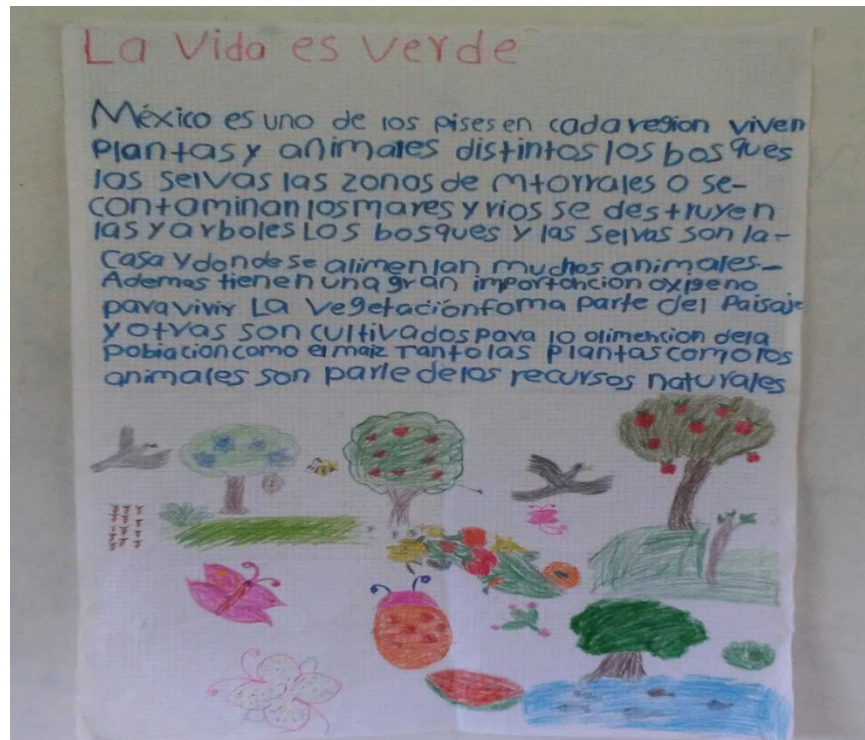 La Vida es verde
México es uno de los pises en cada region viven
Plantas y animales distintos los bosques
las selvas las zonos de mtorrales o se-
contaminan los mares y rios se destruyen
las y arboles Los bosques y las selvas son la-
casa y donde se alimentan muchos animales-
Ademas tienen una gran importancion oxigeno
para vivir La vegetación foma parte del Paisaje
y otras son cultivados para lo olimencion dela
poblacion como el maiz Tanto las Plantas como los
animales son parte de los recursos naturales